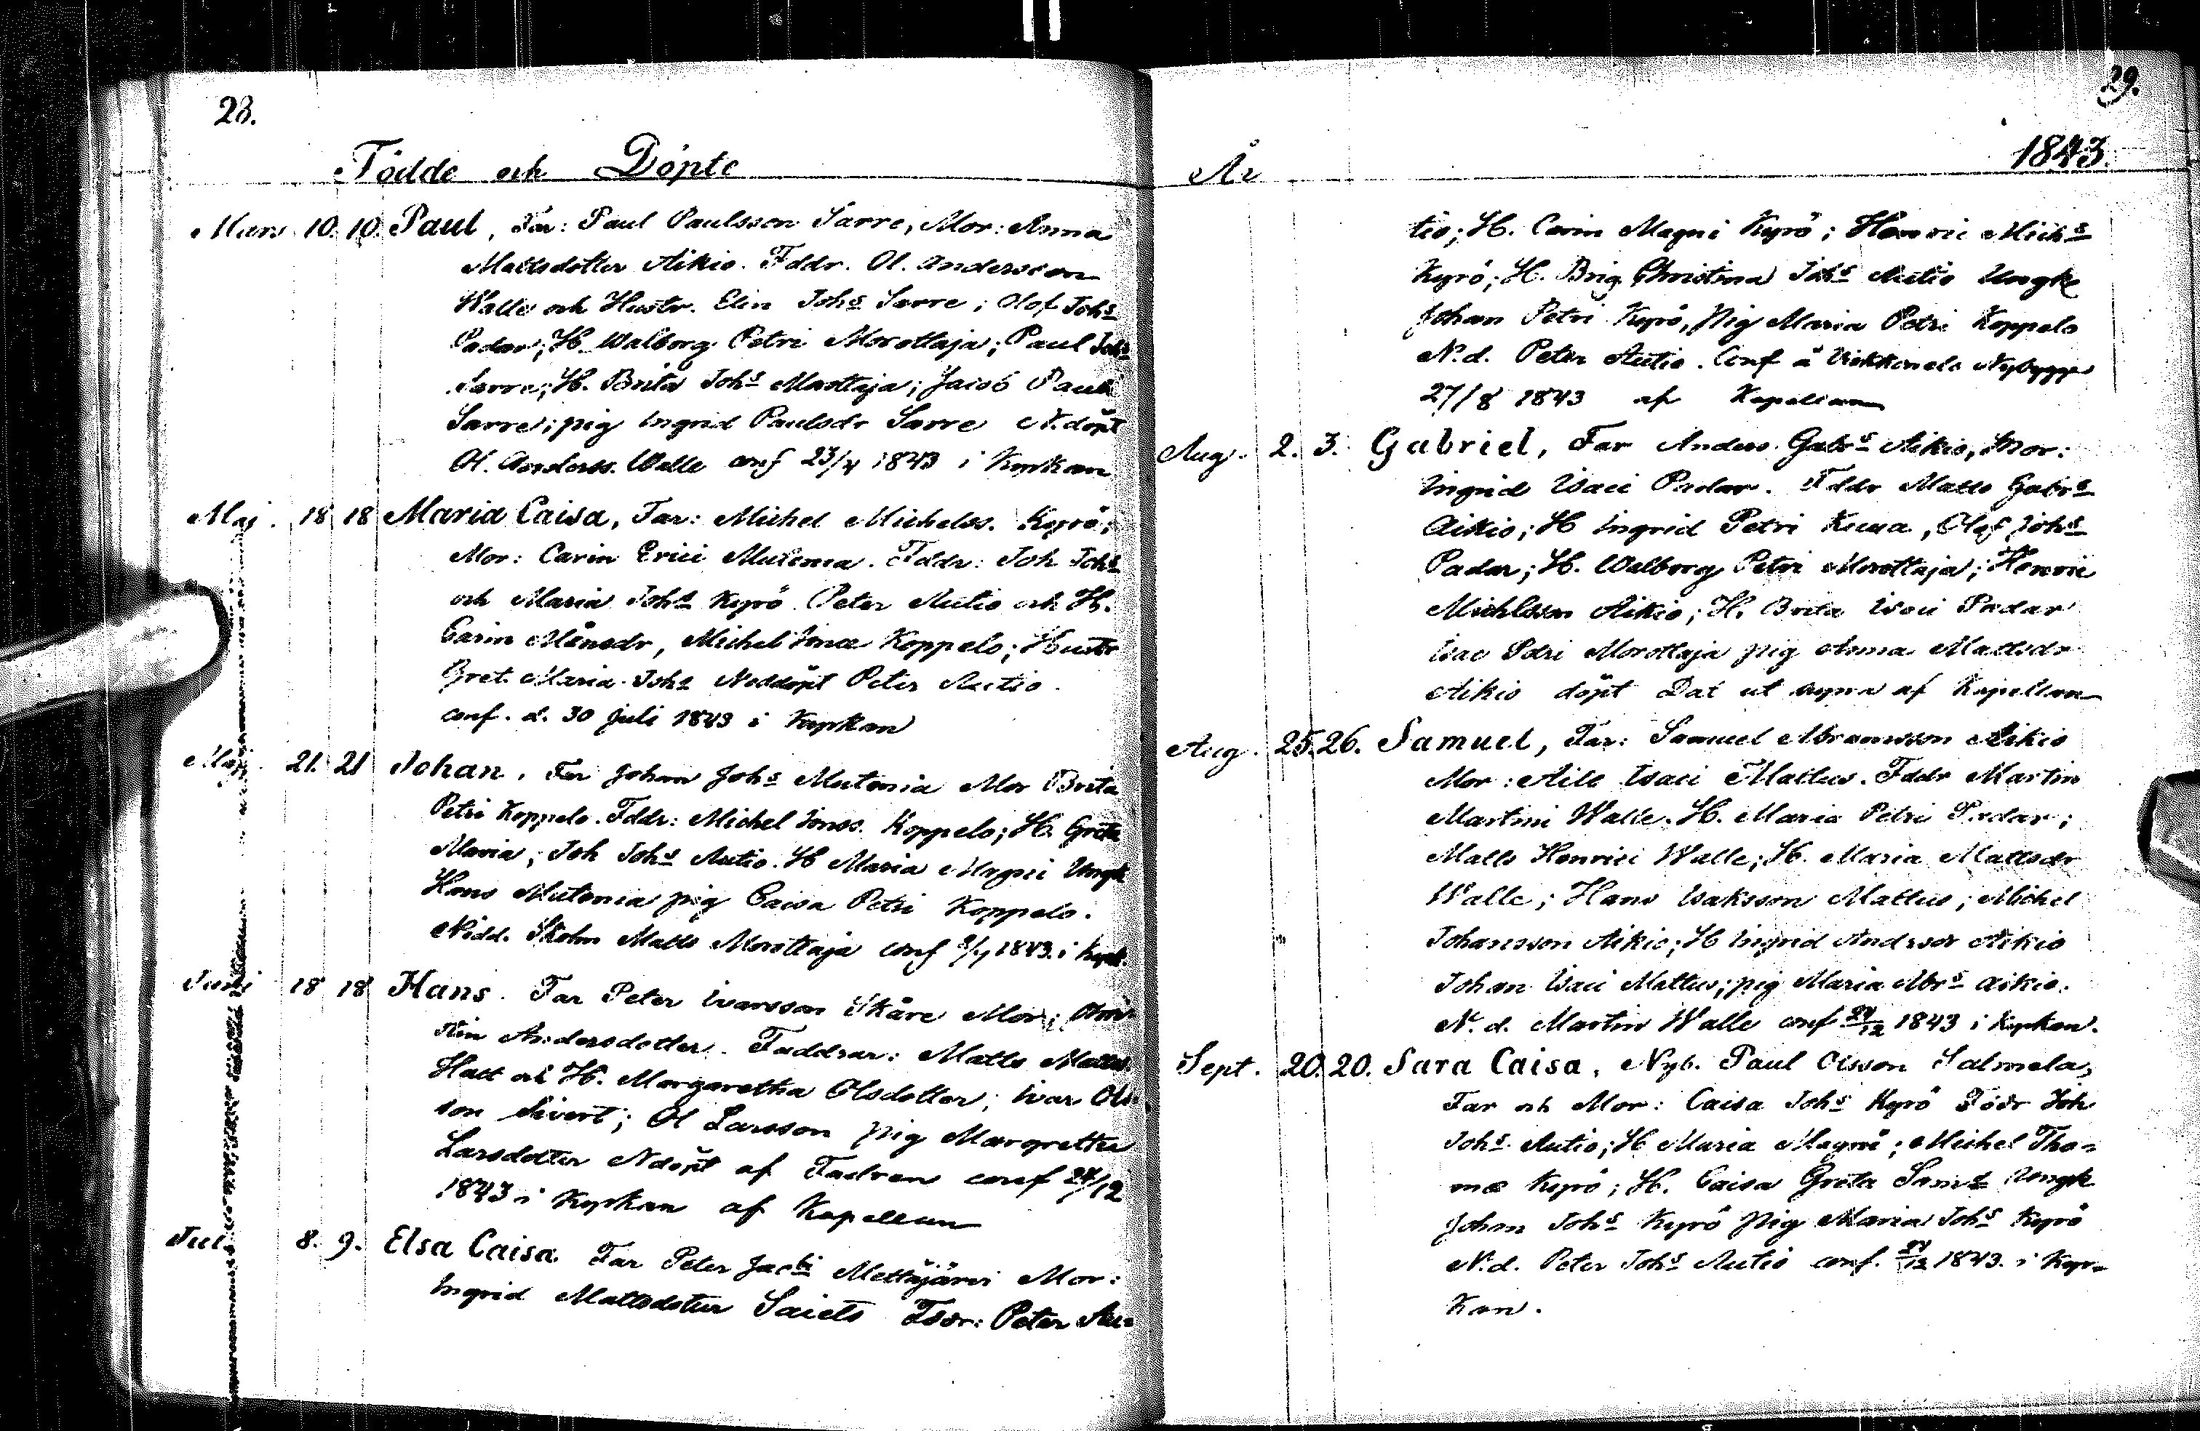 28.
Födde och Döpte
Mars 10. 10. Paul, Far: Paul Paulsson Sarre, Mor: Anna
Mattsdotter Aikio. Fddr. Ol. Andersson
Walle och Hustr. Elin Johs Sarre; Olof Johs
Padar; H. Walborg Petri Morottaja; Paul Johs
Sarre; H. Brita Johs Morottaja; Jacob Pauli
Sarre; pig Ingrid Paulsdr Sarre N.döpt
Ol. Anderss. Walle conf 23/4 1843 i Kyrkan
Maj. 18 18 Maria Caisa, Far: Michel Michelss. Kyrö;
Mor: Carin Erici Mutenia. Fddr: Joh Johs
och Maria Johs Kyrö. Peter Autio och H.
Carin Månsdr, Michel Jonæ Koppelo; Hustr
Gret. Maria Johs Nöddöpt Peter Autio.
conf. d. 30 Juli 1843 i Kyrkan
Maj. 21. 21 Johan. Far Johan Johs Mutenia Mor Brita
Petri Koppelo. Fddr: Michel Jonss. Koppelo; H. Greta
Maria; Joh Johs Autio. H Maria Magni Ungk
Hans Mutenia pig Caisa Petri Koppelo.
Nödd. Skolm Matts Morottaja conf 1843. i Kyrk.
Juni 18 18 Hans. Far Peter Ivarsson Skåre Mor: Chri-
stin Andersdotter. Faddrar: Matts Matts.
Hatt och H. Margaretha Olsdotter; Ivar Ols-
son Sivert; Ol Larsson pig Margretha
Larsdotter Ndöpt af Fadren conf 24/12
1843 i Kyrkan af Kapellan
Juli 8. 9. Elsa Caisa. Far Peter Jacbi Mettäjärvi Mor:
Ingrid Mattsdotter Saiets Fddr: Peter Au-
29.
År 1843.
tio; H. Carin Magni Kyrö; Henric Michs
Kyrö; H. Brig. Christina Johs Autio Ungk
Johan Petri Kyrö, pig Maria Petri Koppelo
N.d. Peter Autio. Conf å Nybygge
27/8 1843 af Kapellan
Aug. 2. 3. Gabriel, Far Anders Gabrs Aikio, Mor:
Ingrid Isaci Padar. Fddr Matts Gabrs
Aikio; H Ingrid Petri Kuua, Olof Johs
Padar; H. Walborg Petri Morottaja; Henric
Michlsson Aikio; H. Brita Isaci Padar
Isac Petri Morottaja pig Anna Mattsdr
Aikio döpt Dat ut supra af Kapellan
Aug. 25. 26. Samuel, Far: Samuel Abramsson Aikio
Mor: Aile Isaci Mattus. Fddr Martin
Martini Walle. H. Maria Petri Padar;
Matts Henrici Walle; H. Maria Mattsdr
Walle; Hans Isaksson Mattus; Michel
Johansson Aikio; H Ingrid Andrsdr Aikio
Johan Isaci Mattus; pig Maria Abrs Aikio.
N. d. Martin Walle conf 24/12 1843 i Kyrkan.
Sept. 20. 20. Sara Caisa, Nyb. Paul Olsson Salmela,
Far och Mor: Caisa Johs Kyrö Fddr Joh
Johs Autio; H Maria Magni; Michel Tho-
mæ Kyrö; H. Caisa Greta Sams Ungk
Johan Johs Kyrö pig Maria Johs Kyrö
N.d. Peter Johs Autio conf. 24/12 1843. i Kyr-
kan.